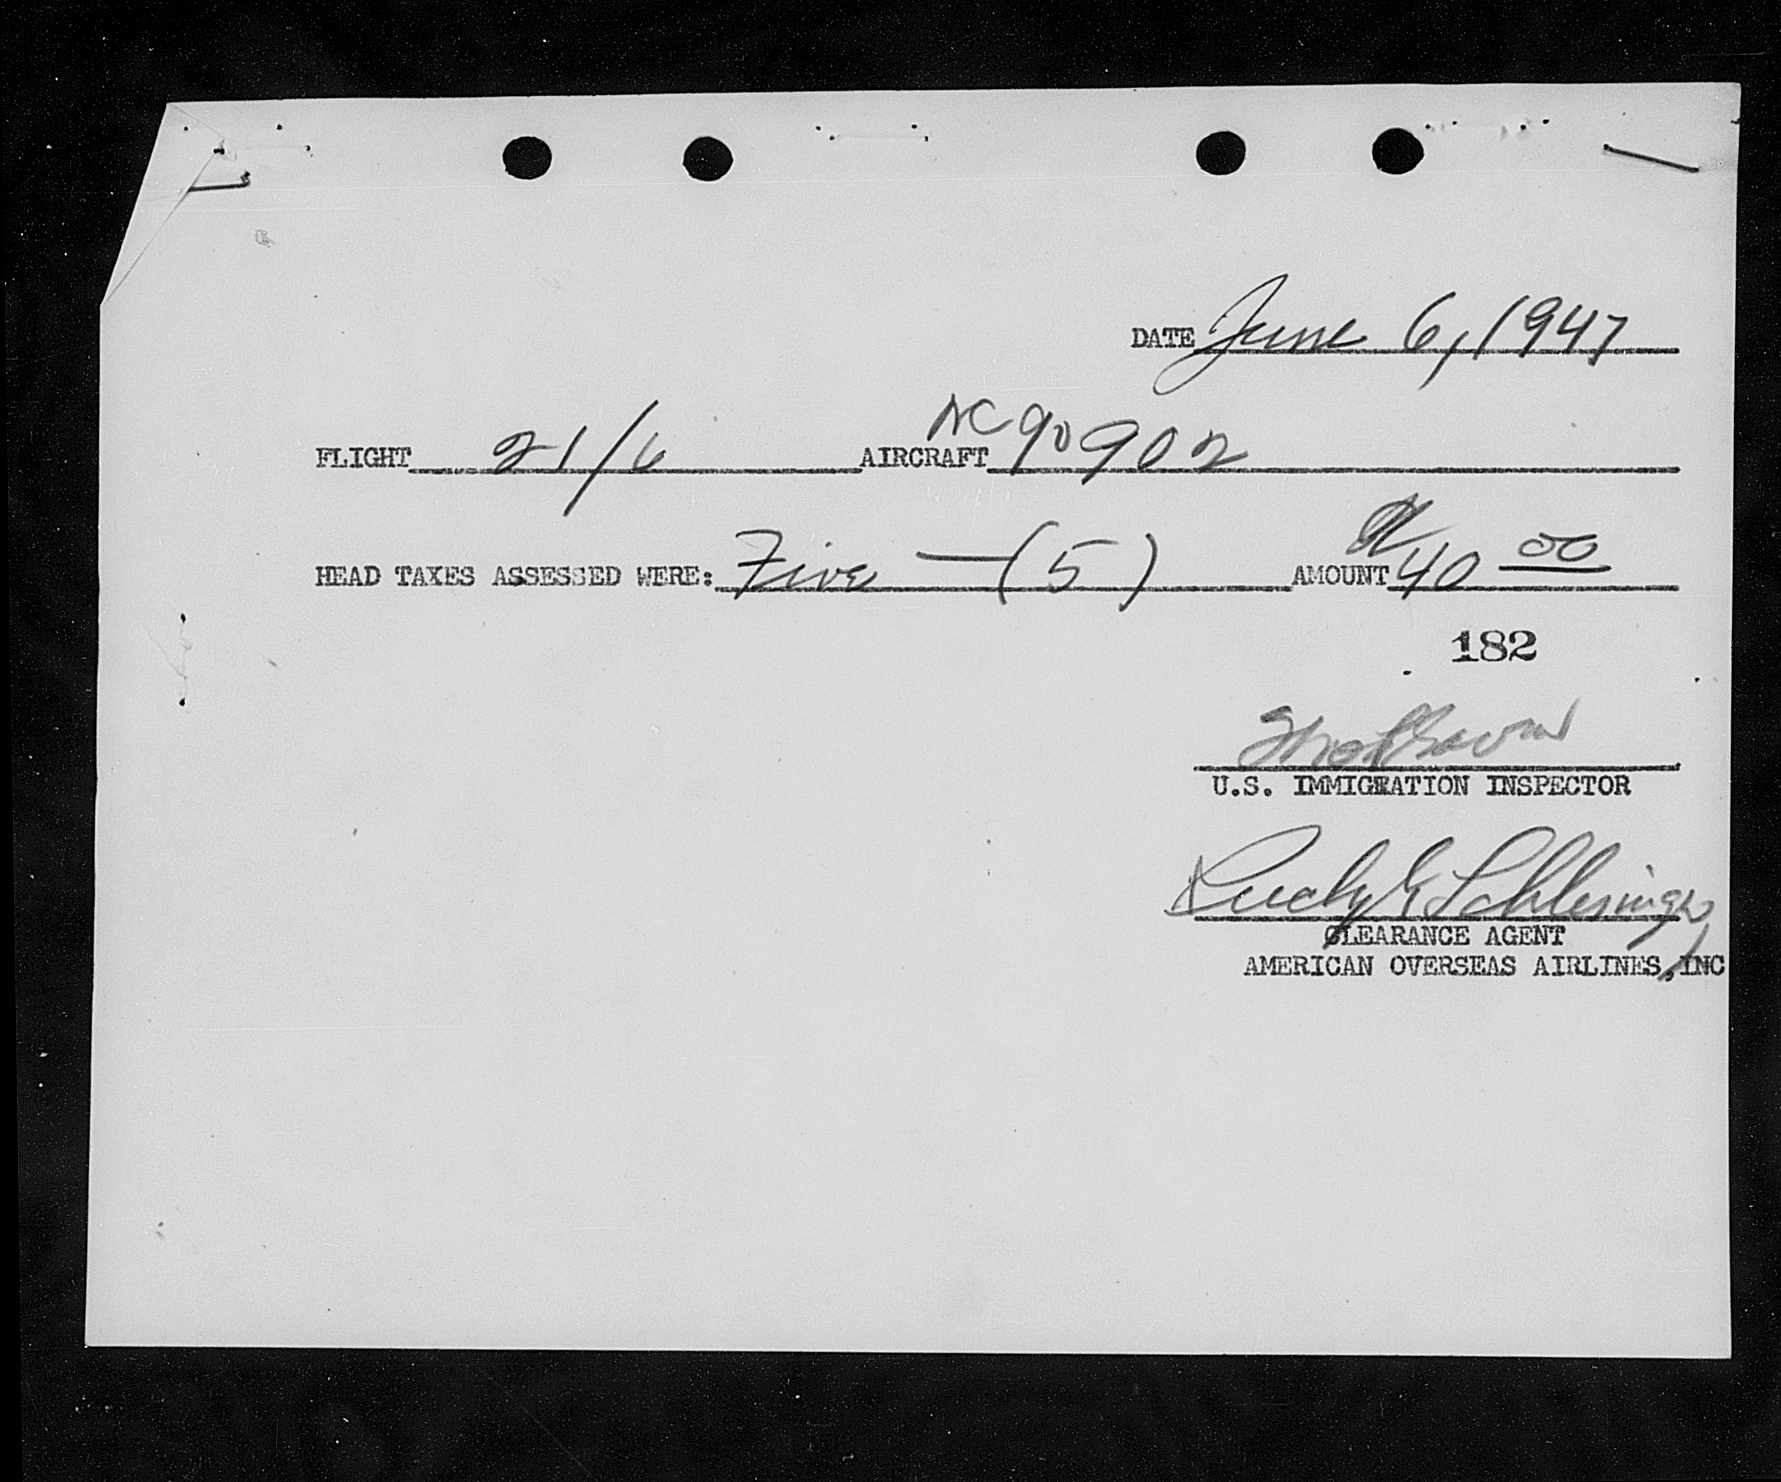 DATE June 6, 1947
FLIGHT 21/6 AIRCRAFT NC 90902
HEAD TAXES ASSESSED WERE: Five — (5) AMOUNT 40 00
182
U.S. IMMIGRATION INSPECTOR
Rudy G Schlesinger
CLEARANCE AGENT
AMERICAN OVERSEAS AIRLINES, INC